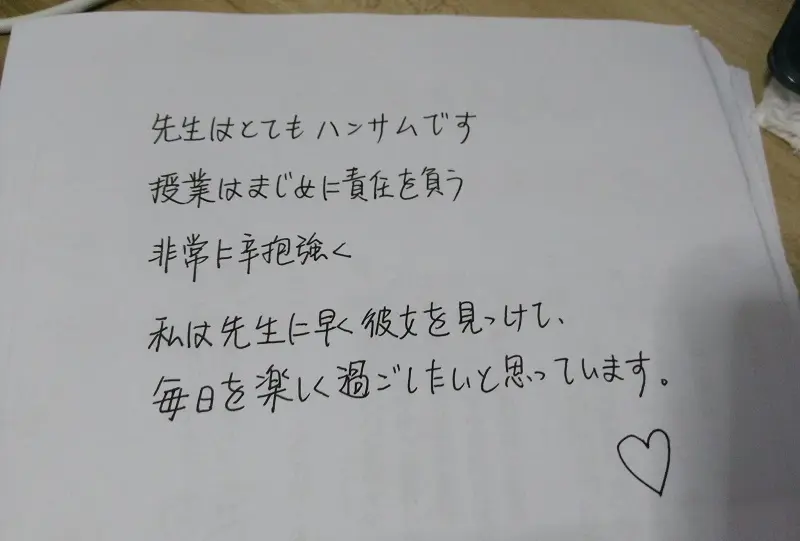 先生はとてもハンサムです
授業はまじめに責任を負う
非常に辛抱強く
私は先生に早く彼女を見つけて、
毎日を楽しく過ごしたいと思っています。